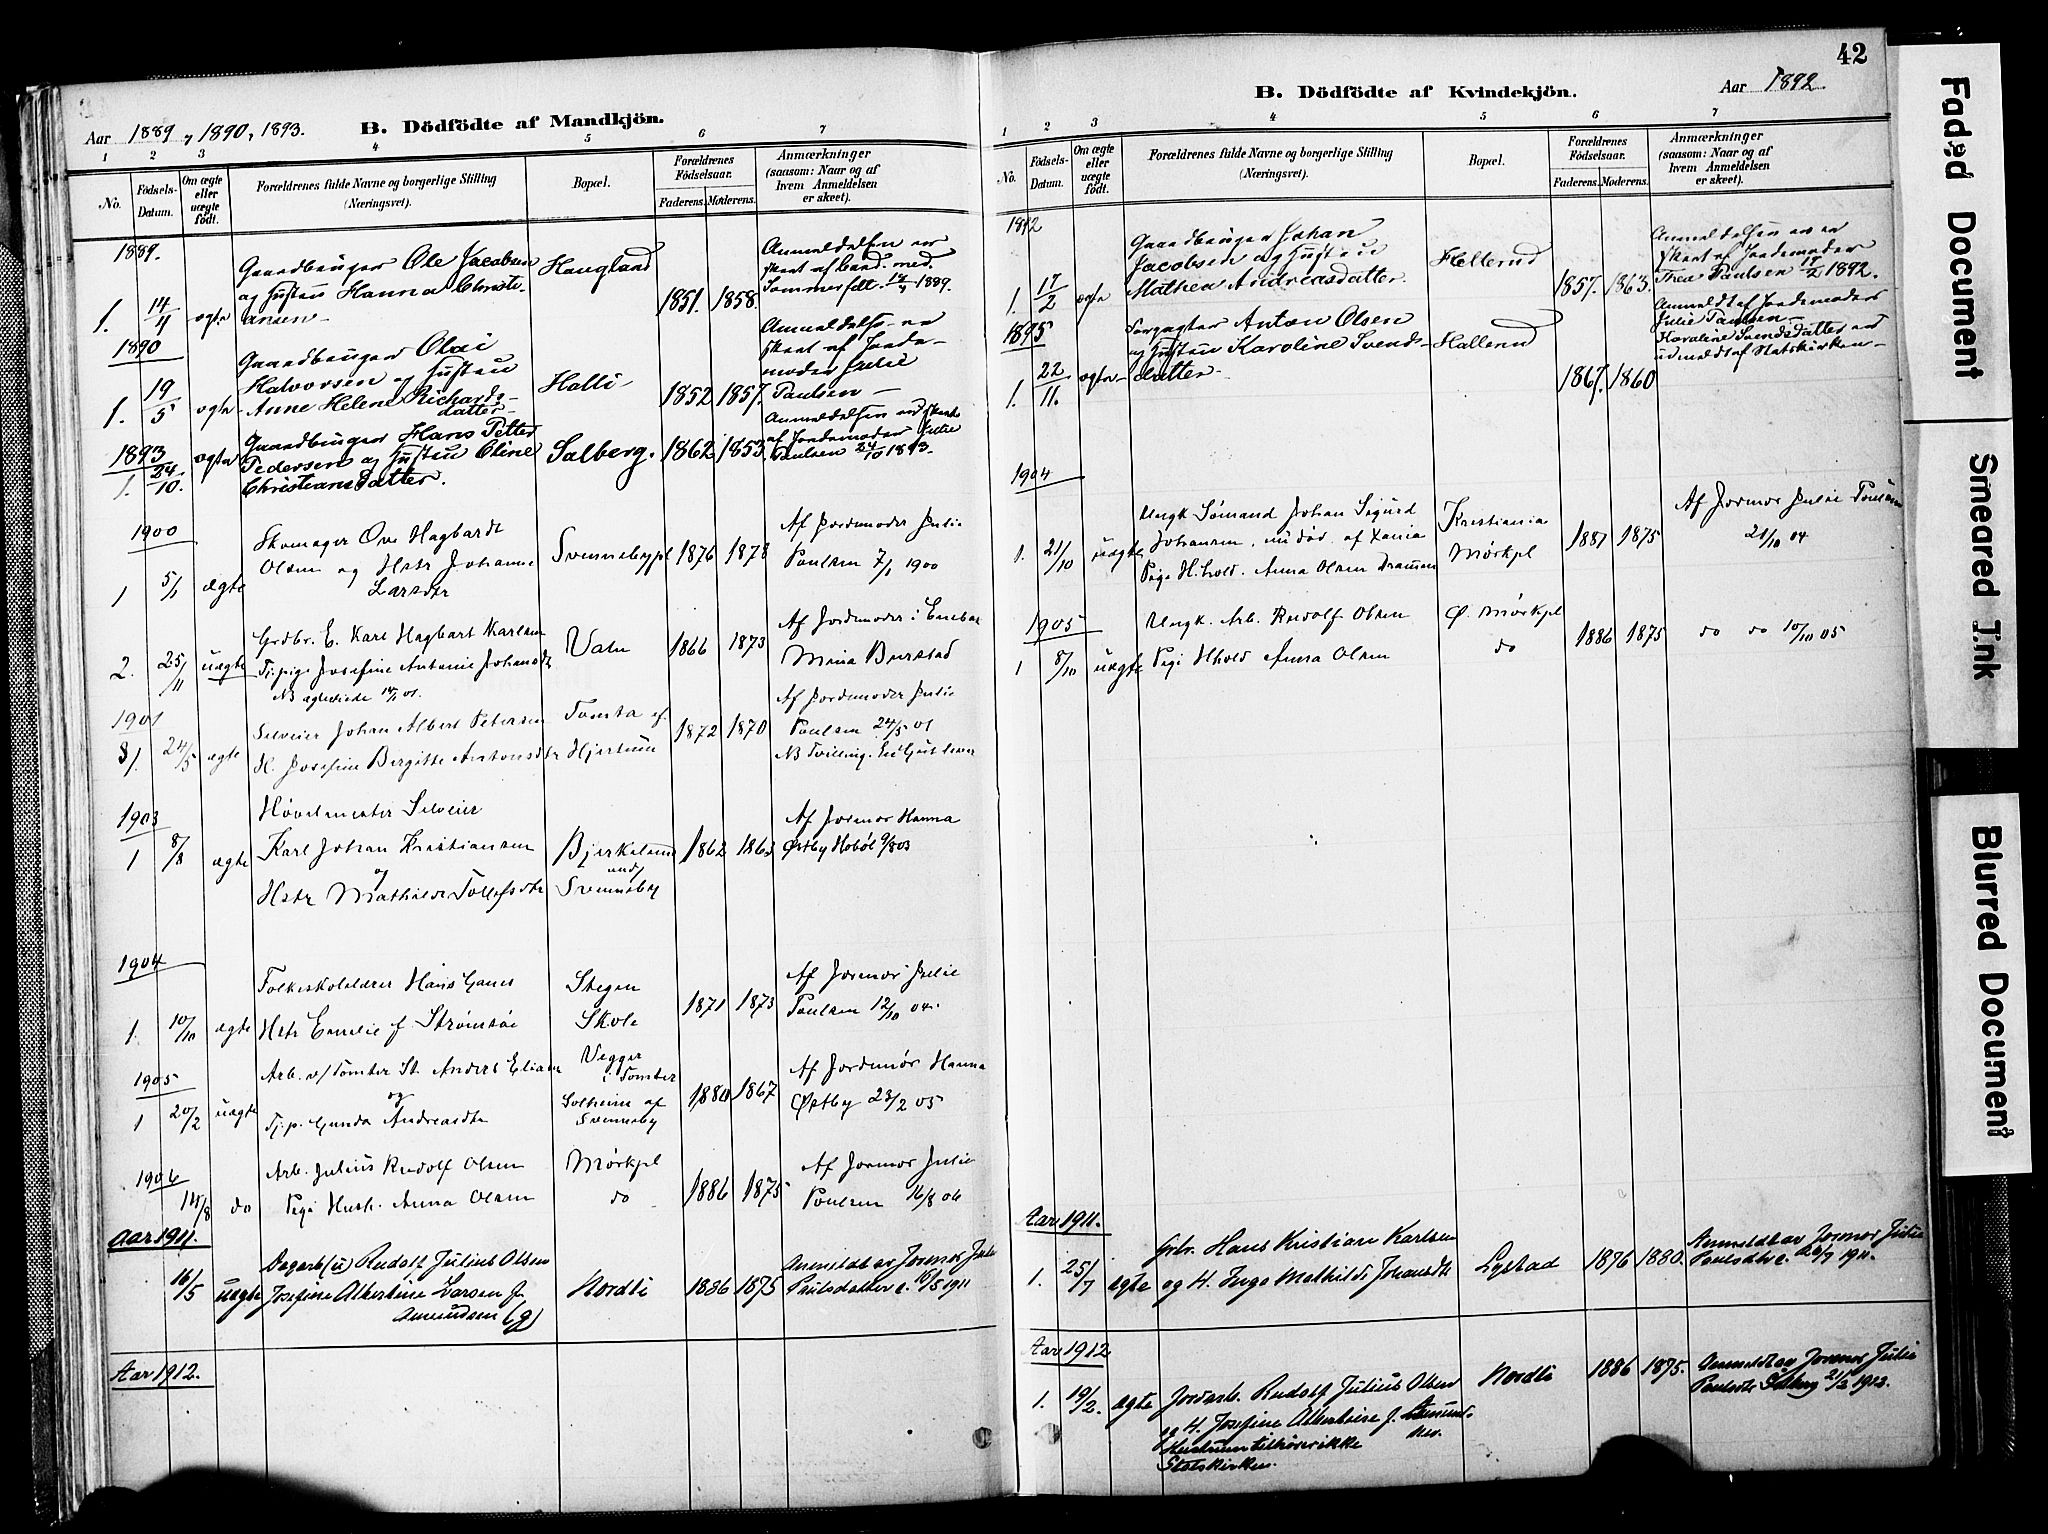 42
Aar 1889, 1890, 1893.
B. Dödfödte af Mandkjön.
1 2 3 4 5 6 7
No.
Födsels-Datum.
Om ægte eller uægte födt.
Forældrenes fulde Navne og borgerlige Stilling
(Næringsvei).
Bopæl.
Forældrenes Födselsaar.
Faderens. Moderens.
Anmærkninger
(saasom: Naar og af
hvem Anmeldelsen
er skeet).
1889.
Gaardbruger Ole Jacobsen
og Hustru Hanna Christi-
ansen
1. 14/4 ægte Haugland 1851. 1858.
Anmeldelsen er
skeet af Gaard. med.
Sommerfelt 14/4 1889.
1890
Gaardbruger Olai
Halvorsen og Hustru
Anne Helene Richards-
datter
1. 19/5 ægte Halli 1852 1857.
Anmeldelse er
skeet af Jorde-
moder Julie
Paulsen
1893
Gaardbruger Hans Petter
Pedersen og Hustru Oline
Christiansdatter.
1. 24/10. ægte Solberg. 1862 1853.
Anmeldelsen er skeet
af Jordemoder Julie
Paulsen 24/10 1893.
1900
Skomager Ove Hagbardt
Olsen og Hstr Johanne
Larsdtr
1 5/1 ægte Svennebypl 1876 1878
Af Jordemoder Julie
Paulsen 7/1 1900
Grdbr. E. Karl Hagbart Karlsen
Tj.pige Josefine Antonie Johansdtr
2. 25/11 uægte Vatn 1866 1873
Af Jordemoder i Enebak
Mina Burstad
1901
Selveier Johan Albert Petersen
H. Josefine Birgitte Antonsdtr
24/5 ægte Tomta af Hjertum 1872 1870
Af Jordemoder Julie
Paulsen 24/5 01
NB Tvilling. En Gut lever
1903
Høvelmester Selveier
Karl Johan Kristiansen
og
Hstr Mathilde Tollefsdtr
1 8/8 ægte Bjerkelund
under
Svenneby
1862 1863
Af Jormor Hanna
Østby Hobøl 9/8 03
1904
Folkeskolelærer Hans
Hstr Emelie f Strømsøe
1. 10/10 ægte Stegen
Skole
1871 1873
Af Jormor Julie
Paulsen 12/10 04.
1905
Arb. v/Tomter St. Anders Eliasen
og
Tj.p. Gunda Andreasdtr
1 20/2 uægte
Vegger
i Tomter
Solheim af
Svenneby
1880 1867
Af Jordemor Hanna
Østby 23/2 05
1906
Arb. Julius Rudolf Olsen
Pige Hush. Anna Olsen
14/8 do Mørkpl
do
1886 1875
Af Jormor Julie
Paulsen 16/8 06
Aar 1911.
Dagarb (u) Rudolf Julius Olsen
Josefine Albertine Larsen f.
Amundsen (g)
16/5 uægte Nordli 1886 1875
Anmeldt av Jormor Julie
Paulsdatter 16/5 1911
Aar 1912.
B. Dödfödte af Kvindekjön.
Aar 1892
1 2 3 4 5 6 7
No.
Födsels-Datum.
Om ægte eller uægte födt.
Forældrenes fulde Navne og borgerlige Stilling
(Næringsvei).
Bopæl.
Forældrenes Födselsaar.
Faderens. Moderens.
Anmærkninger
(saasom: Naar og af
hvem Anmeldelsen
er skeet).
1892
Gaardbruger Johan
Jacobsen og Hustru
Mathea Andreasdatter.
1. 17/2 ægte Hellerud 1857. 1863.
Anmeldelsen er
skeet af Jordemoder
Thea Paulsen 17/2 1892.
1895
Forpagter Anton Olsen
og Hustru Karoline Svends-
datter
1. 22/11. ægte Hallerud 1867. 1860
Anmeldt af Jordemoder
Julie Paulsen
Karoline Svendsdatter er
udmeldt af Statskirken
1904
Ungk Sømand Johan Sigurd
Johansen, nu død, af Xania
Pige H.hold. Anna Olsen Drammen
1. 21/10 uægte Kristiania
Mørkpl
1881 1875
Af Jormor Julie Paulsen
21/10 04
1905
Ungk. Arb. Rudolf Olsen
Pige Hhold Anna Olsen
1 8/10 uægte Ø. Mørkpl
do
1886 1875
do do 10/10 05
Aar 1911.
Grbr. Hans Kristian Karlsen
og H. Inga Mathilde Johansdtr
1. 25/7 ægte Lystad 1876 1880.
Anmeldt av Jormor Julie
Paulsdtr 26/7 1911.
Aar 1912
1. 19/2. ægte Jordarb. Rudolf Julius Olsen
og H. Josefine Albertine f. Amund-
sen.
Hustruen tilhører ikke
Statskirken.
Nordli 1886 1875.
Anmeldt av Jormor Julie
Paulsdtr Solberg 21/2 1912.
Faded Document
Smeared Ink
Blurred Document